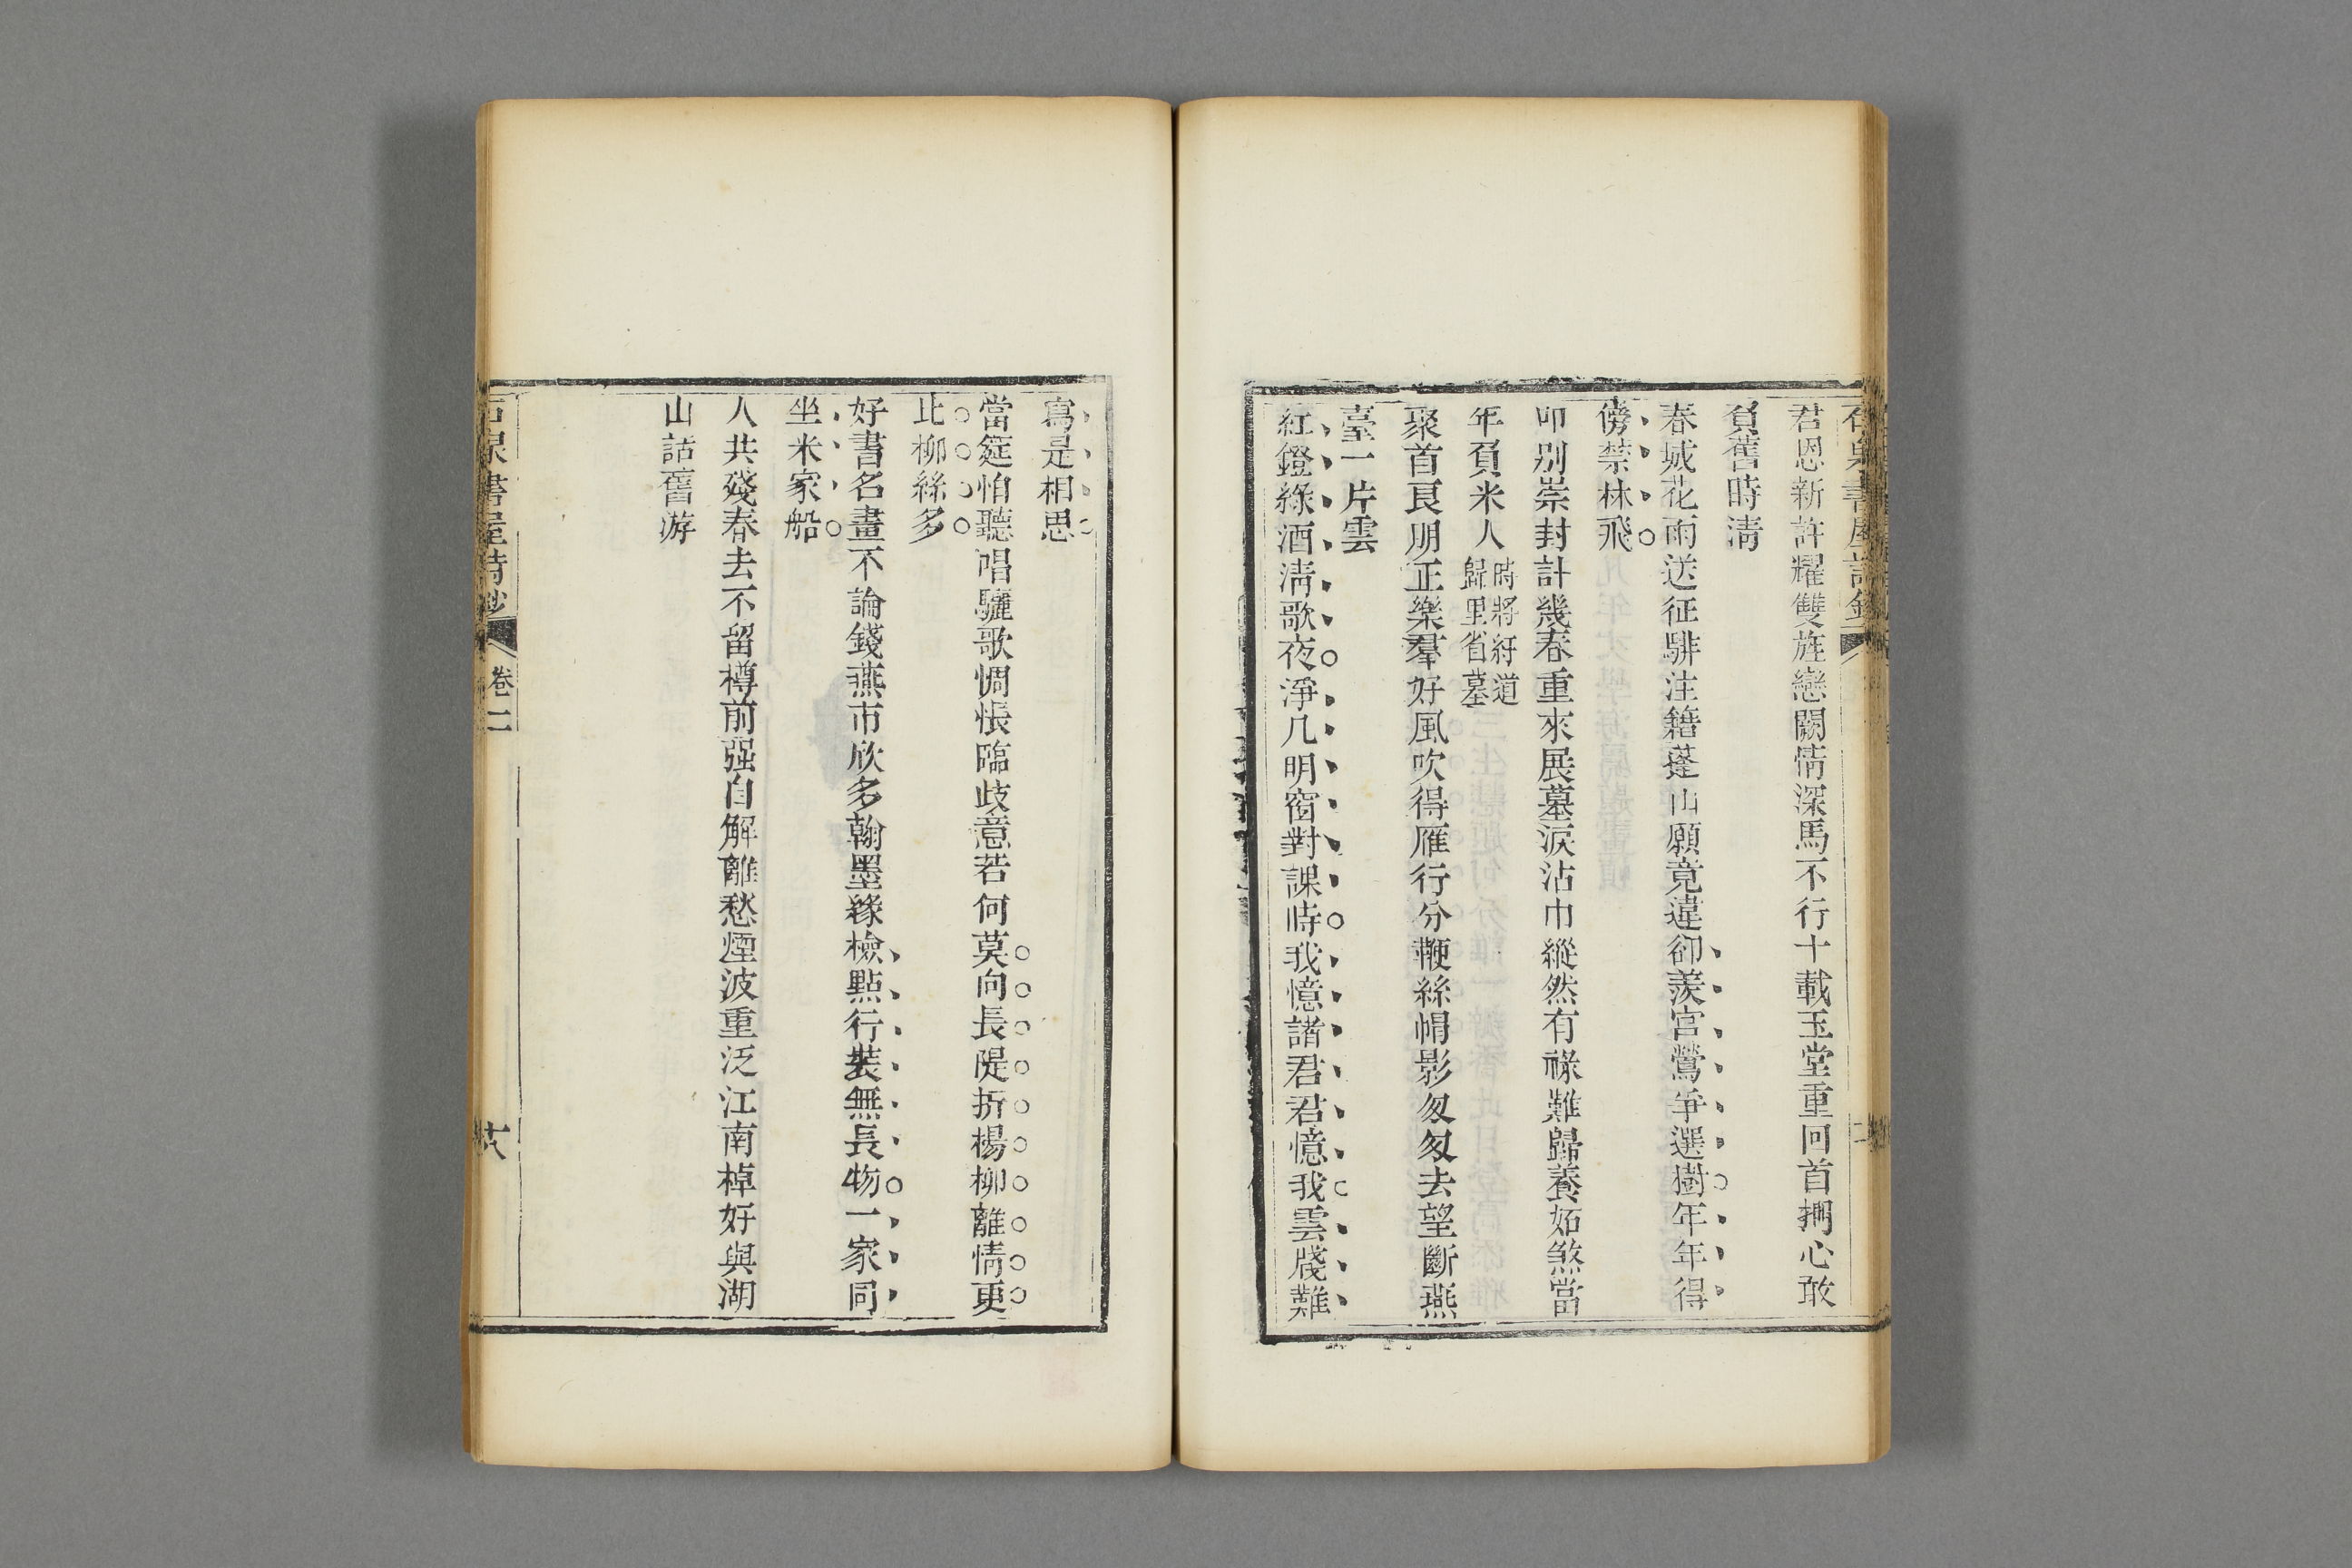 君恩新許耀雙旌戀闕情深馬不行十載玉堂重回首捫心敢
負舊時清
春城花雨送征騑注籍蓬山願竟違卻羨宮鶯爭選樹年年得
傍禁林飛
叩别崇封計幾春重來展墓淚沾巾縱然有祿難歸養妬煞當
年負米人時將紆道歸里省墓
聚首良朋正樂羣好風吹得雁行分鞭絲帽影匆匆去望斷燕
臺一片雲
紅鐙綠酒清歌夜淨几明窗對課時我憶諸君君憶我雲牋難
寫是相思
當筵怕聽唱驪歌惆悵臨歧意若何莫向長隄折楊柳離情更
比柳絲多
好書名畫不論錢燕市欣多翰墨緣檢點行裝無長物一家同
坐米家船
人共殘春去不留樽前强自解離愁煙波重泛江南棹好與湖
山話舊游
石泉書屋詩鈔
卷二
六